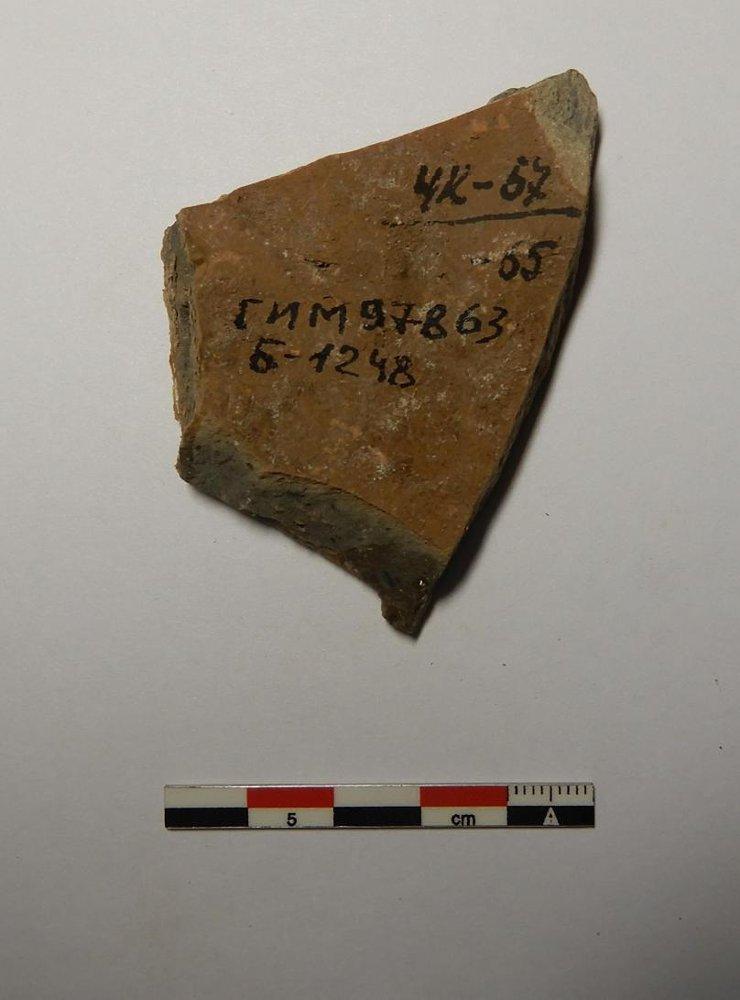 ЧК-57
65
ГИМ 97863
Б-1248
5 cm